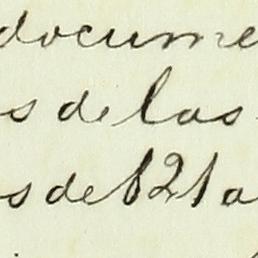 docume
s de las
s de 121 a